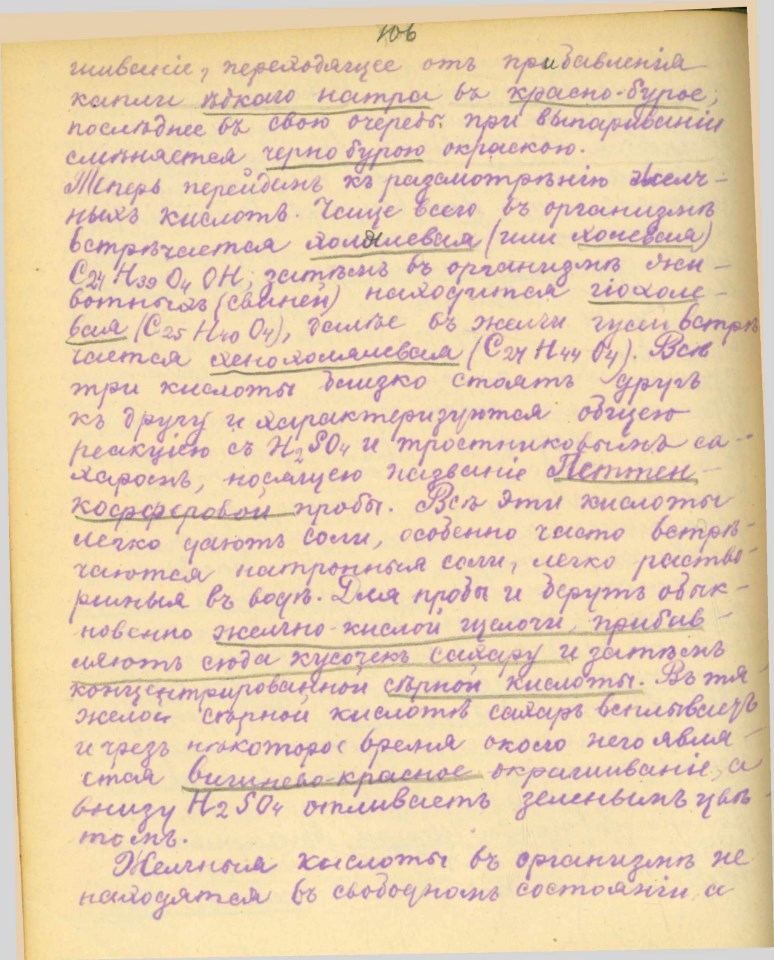 106
шиваніе, переходящее отъ прибавленія
капли ѣдкаго натра въ красно-бурое;
послѣднее въ свою очередь при выпариваніи
смѣняется чернобурою окраскою.
Теперь перейдемъ къ разсмотрѣнію желч-
ныхъ кислотъ. Чаще всего въ организмѣ
встрѣчается холялевая (или холевая)
C24 H39 O4 OH; затѣмъ въ организмѣ жи-
вотныхъ (свиней) находится гіохоле-
вая (C25 H40 O4), далѣе въ желчи гусей встрѣ
чается хенохолялевая (C27 H44 O4). Всѣ
три кислоты близко стоятъ другъ
къ другу и характеризуются общею
реакціею съ H2SO4 и тростниковымъ са-
харомъ, носящею названіе Петтен-
коферовой пробы. Всѣ эти кислоты
легко даютъ соли, особенно часто встрѣ-
чаются натронныя соли, легко раство-
римыя въ водѣ. Для пробы и берутъ обык-
новенно желчно-кислой щелочи, прибав-
ляютъ сюда кусочекъ сахару и затѣмъ
концентрированной сѣрной кислоты. Въ тя-
желой сѣрной кислотѣ сахаръ всплываетъ
и чрезъ нѣкоторое время около него явля-
ется вишнево-красное окрашиваніе, а
внизу H2SO4 отливаетъ зеленымъ цвѣ-
томъ.
Желчныя кислоты въ организмѣ не
находятся въ свободномъ состояніи, а